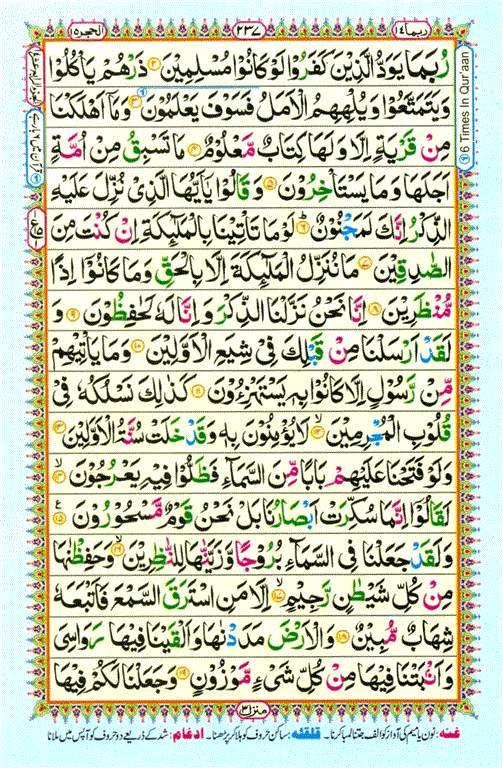 ربما ١٤
٢٣٧
الحجر ١٥
رُبَمَا يَوَدُّ الَّذِيْنَ كَفَرُوْا لَوْ كَانُوْا مُسْلِمِيْنَ ۝۲ ذَرْهُمْ يَاْكُلُوْا
وَيَتَمَتَّعُوْا وَيُلْهِهِمُ الْاَمَلُ فَسَوْفَ يَعْلَمُوْنَ ۝۳ وَمَاۤ اَهْلَكْنَا
مِنْ قَرْيَةٍ اِلَّا وَلَهَا كِتَابٌ مَّعْلُوْمٌ ۝۴ مَا تَسْبِقُ مِنْ اُمَّةٍ
اَجَلَهَا وَمَا يَسْتَاْخِرُوْنَ ۝۵ وَقَالُوْا يٰۤاَيُّهَا الَّذِيْ نُزِّلَ عَلَيْهِ
الذِّكْرُ اِنَّكَ لَمَجْنُوْنٌ ۝۶ لَوْ مَا تَاْتِيْنَا بِالْمَلٰٓئِكَةِ اِنْ كُنْتَ مِنَ
الصّٰدِقِيْنَ ۝۷ مَا نُنَزِّلُ الْمَلٰٓئِكَةَ اِلَّا بِالْحَقِّ وَمَا كَانُوْۤا اِذًا
مُّنْظَرِيْنَ ۝۸ اِنَّا نَحْنُ نَزَّلْنَا الذِّكْرَ وَاِنَّا لَهٗ لَحٰفِظُوْنَ ۝۹ وَ
لَقَدْ اَرْسَلْنَا مِنْ قَبْلِكَ فِيْ شِيَعِ الْاَوَّلِيْنَ ۝۱۰ وَمَا يَاْتِيْهِمْ
مِّنْ رَّسُوْلٍ اِلَّا كَانُوْا بِهٖ يَسْتَهْزِءُوْنَ ۝۱۱ كَذٰلِكَ نَسْلُكُهٗ فِيْ
قُلُوْبِ الْمُجْرِمِيْنَ ۝۱۲ لَا يُؤْمِنُوْنَ بِهٖ وَقَدْ خَلَتْ سُنَّةُ الْاَوَّلِيْنَ ۝۱۳
وَلَوْ فَتَحْنَا عَلَيْهِمْ بَابًا مِّنَ السَّمَآءِ فَظَلُّوْا فِيْهِ يَعْرُجُوْنَ ۝۱۴
لَقَالُوْۤا اِنَّمَا سُكِّرَتْ اَبْصَارُنَا بَلْ نَحْنُ قَوْمٌ مَّسْحُوْرُوْنَ ۝۱۵
وَلَقَدْ جَعَلْنَا فِي السَّمَآءِ بُرُوْجًا وَّزَيَّنّٰهَا لِلنّٰظِرِيْنَ ۝۱۶ وَحَفِظْنٰهَا
مِنْ كُلِّ شَيْطٰنٍ رَّجِيْمٍ ۝۱۷ اِلَّا مَنِ اسْتَرَقَ السَّمْعَ فَاَتْبَعَهٗ
شِهَابٌ مُّبِيْنٌ ۝۱۸ وَالْاَرْضَ مَدَدْنٰهَا وَاَلْقَيْنَا فِيْهَا رَوَاسِيَ
وَاَنْۢبَتْنَا فِيْهَا مِنْ كُلِّ شَيْءٍ مَّوْزُوْنٍ ۝۱۹ وَجَعَلْنَا لَكُمْ فِيْهَا
منزل ٣
غنه: نون یا میم کی آواز کو الف جتنا لمبا کرنا۔ قلقلہ: ساکن حروف کو ہلا کر پڑھنا۔ ادغام: شد کے ذریعے دو حروف کو آپس میں ملانا
6 Times In Qur'aan